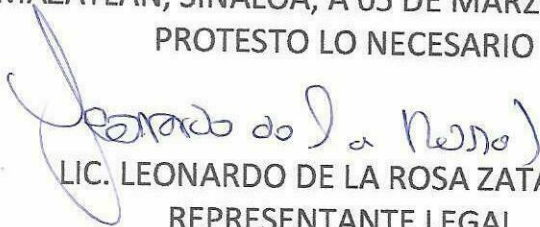 MAZATLÁN, SINALOA, A 05 DE MARZ
PROTESTO LO NECESARIO
Leonardo de la Rosa
LIC. LEONARDO DE LA ROSA ZATA
REPRESENTANTE LEGAL